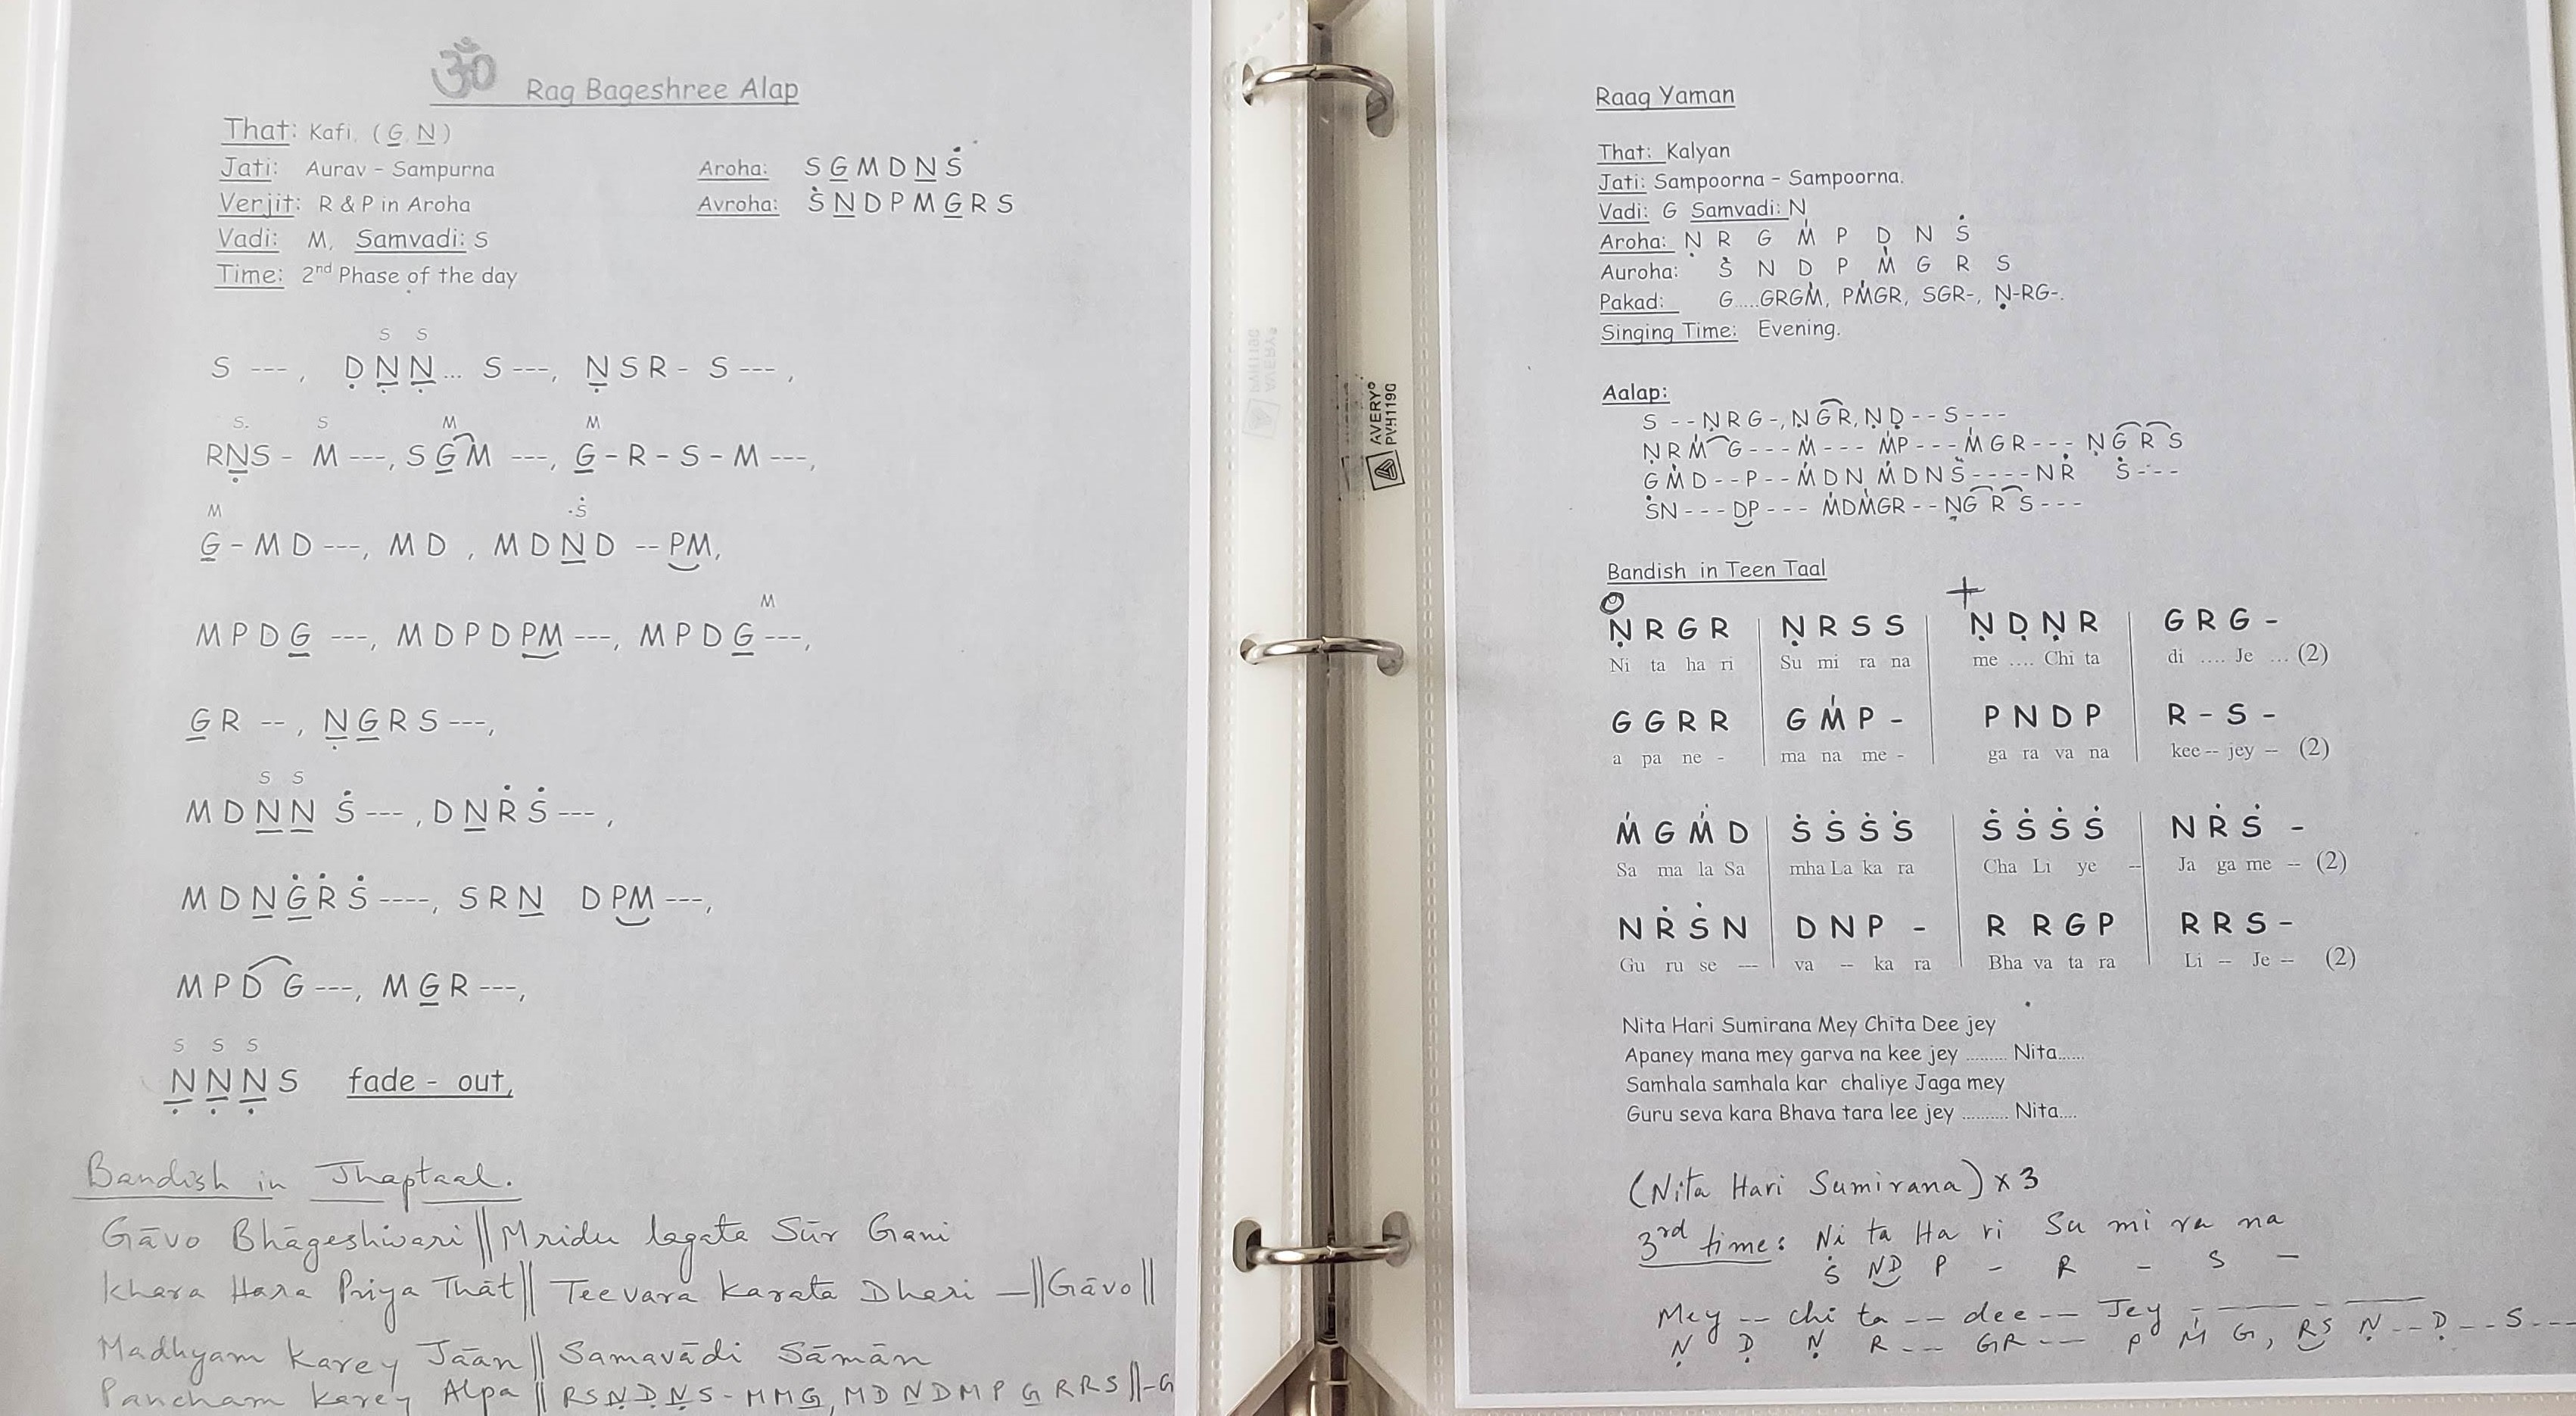 ॐ Rag Bageshree Alap
That: Kafi, (G̲ N̲)
Jati: Aurav - Sampurna
Aroha: S G̲ M D N̲ Ṡ
Verjit: R & P in Aroha
Avroha: Ṡ N̲ D P M G̲ R S
Vadi: M, Samvadi: S
Time: 2nd Phase of the day
S S
S ---, Ḍ Ṇ̲ Ṇ̲... S ---, Ṇ̲ S R - S ---,
S. S M M
RṆ̲S - M ---, S G̲ M ---, G̲ - R - S - M ---,
M Ṡ
G̲ - M D ---, M D , M D N̲ D -- PM,
M
M P D G̲ ---, M D P D PM ---, M P D G̲ ---,
G̲ R -- , Ṇ̲ G̲ R S ---,
S S
M D N̲ N̲ Ṡ --- , D N̲ Ṙ Ṡ --- ,
M D N̲ Ġ̲ Ṙ Ṡ ----, S R N̲ D PM ---,
M P D G ---, M G̲ R ---,
S S S
Ṇ̲ Ṇ̲ Ṇ̲ S fade - out,
Bandish in Jhaptaal.
Gāvo Bhāgeshwari || Mridu lagata Sūr Gani
Khara Hara Priya Thāt || Teevara Karata Dhari — || Gāvo ||
Madhyam Karey Jāān || Samavādi Sāmān
Pancham Karey Alpa || R S Ṇ Ḍ Ṇ S - M M G̲, M D N̲ D M P G̲ R R S || - G
AVERY®
PVH119G
Raag Yaman
That: Kalyan
Jati: Sampoorna - Sampoorna.
Vadi: G Samvadi: N
Aroha: Ṇ R G M̍ P D N Ṡ
Auroha: Ṡ N D P M̍ G R S
Pakad: G.....GRGM̍, PM̍GR, SGR-, Ṇ-RG-.
Singing Time: Evening.
Aalap:
S - - Ṇ R G -, Ṇ G R, Ṇ Ḍ - - S - - -
Ṇ R M̍ G - - - M̍ - - - M̍P - - - M̍ G R - - - Ṇ G R S
G M̍ D - - P - - M̍ D N M̍ D N Ṡ - - - - N Ṙ Ṡ - - -
ṠN - - - DP - - - M̍DM̍GR - - ṆG R S - - -
Bandish in Teen Taal
O +
Ṇ R G R | Ṇ R S S | Ṇ Ḍ Ṇ R | G R G -
Ni ta ha ri Su mi ra na me .... Chi ta di .... Je ... (2)
G G R R | G M̍ P - | P N D P | R - S -
a pa ne - ma na me - ga ra va na kee -- jey – (2)
M̍ G M̍ D | Ṡ Ṡ Ṡ Ṡ | Ṡ Ṡ Ṡ Ṡ | N Ṙ Ṡ -
Sa ma la Sa mha La ka ra Cha Li ye -- Ja ga me – (2)
N Ṙ Ṡ N | D N P - | R R G P | R R S -
Gu ru se --- va -- ka ra Bha va ta ra Li – Je – (2)
Nita Hari Sumirana Mey Chita Dee jey
Apaney mana mey garva na kee jey ......... Nita......
Samhala samhala kar chaliye Jaga mey
Guru seva kara Bhava tara lee jey .......... Nita....
(Nita Hari Sumirana) x 3
3rd time: Ni ta Ha ri Su mi ra na
Ṡ ND P - R - S -
Mey -- chi ta -- dee -- Jey - —— - ——
Ṇ Ḍ Ṇ R -- GR --- P M̍ G, RS Ṇ -- Ḍ -- S ---